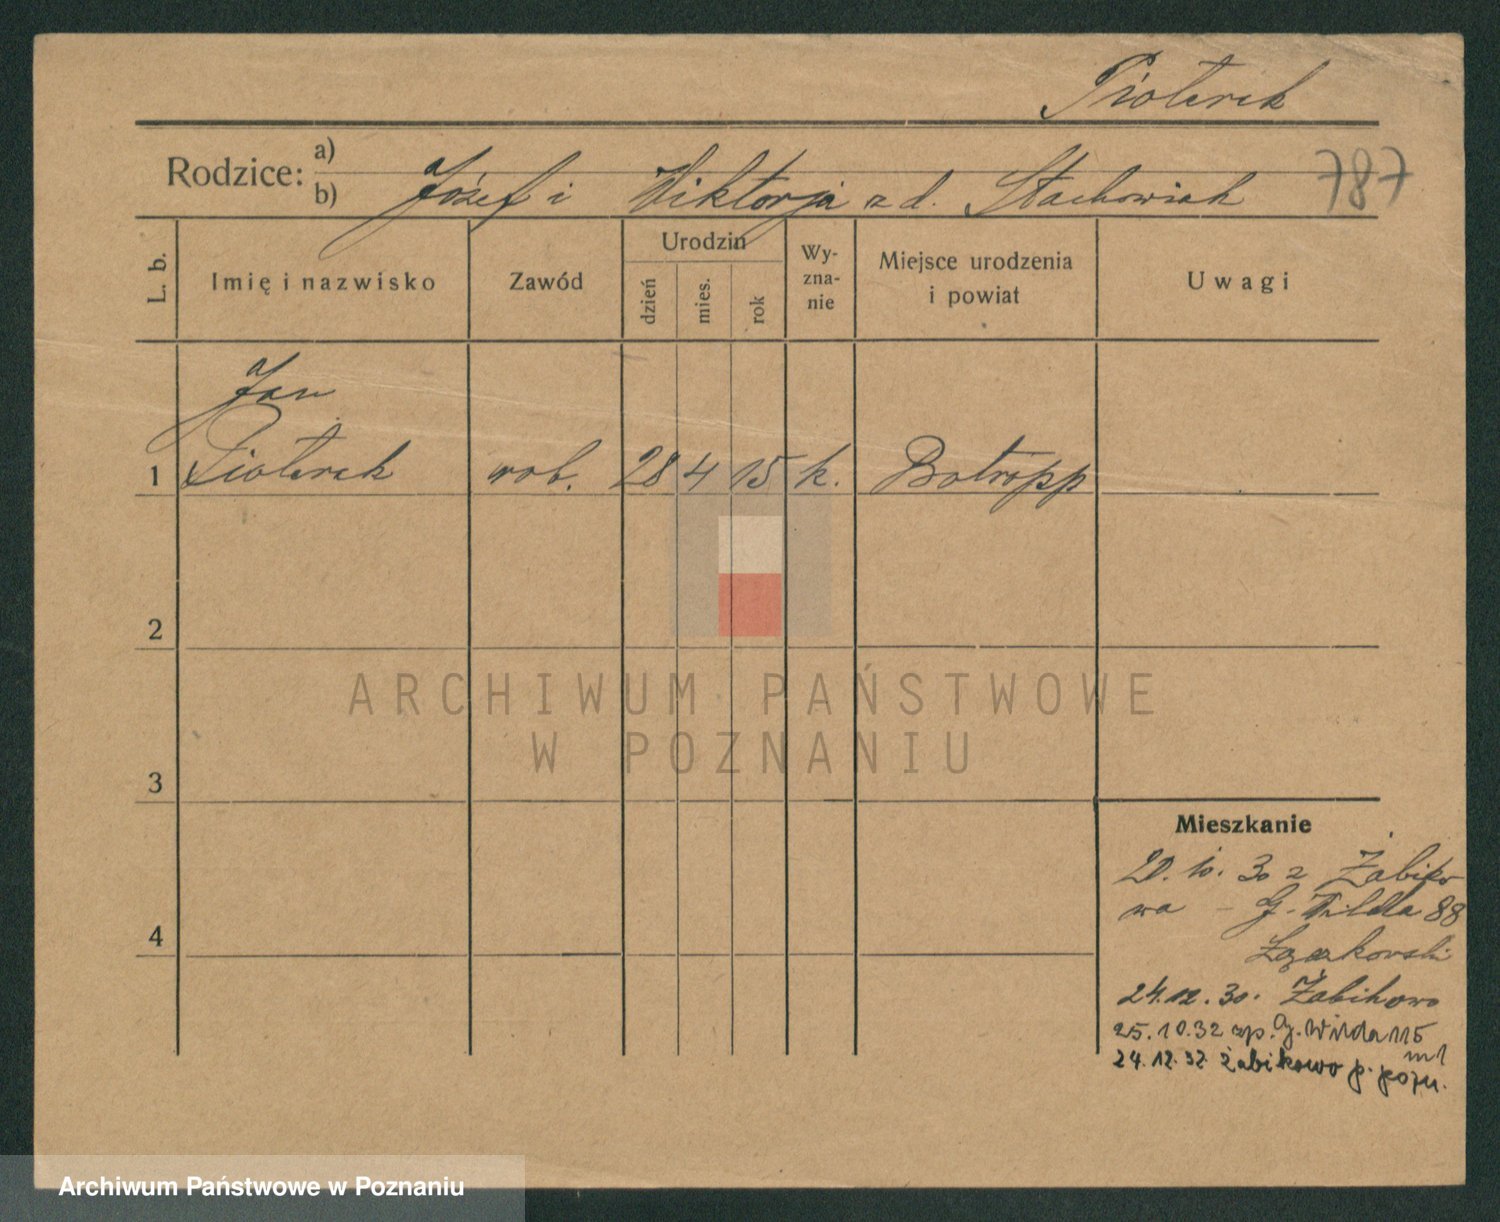 Pioterek
Rodzice: a)
b) Józef i Wiktorja z d. Stachowiak 787
L. b. Imię i nazwisko Zawód Urodzin dzień mies. rok Wy-zna-nie Miejsce urodzenia i powiat Uwagi
Jan
1 Pioterek rob. 28 4 15 k. Botropp
2
ARCHIWUM PAŃSTWOWE
W POZNANIU
3
Mieszkanie
20. 10. 30 z Żabiko
wa - G. Wilda 88
4
24.12.30. Żabikowo
25.10.32 zp. G. Wilda 115
m 1
24.12.32 Żabikowo p. pozn.
Archiwum Państwowe w Poznaniu